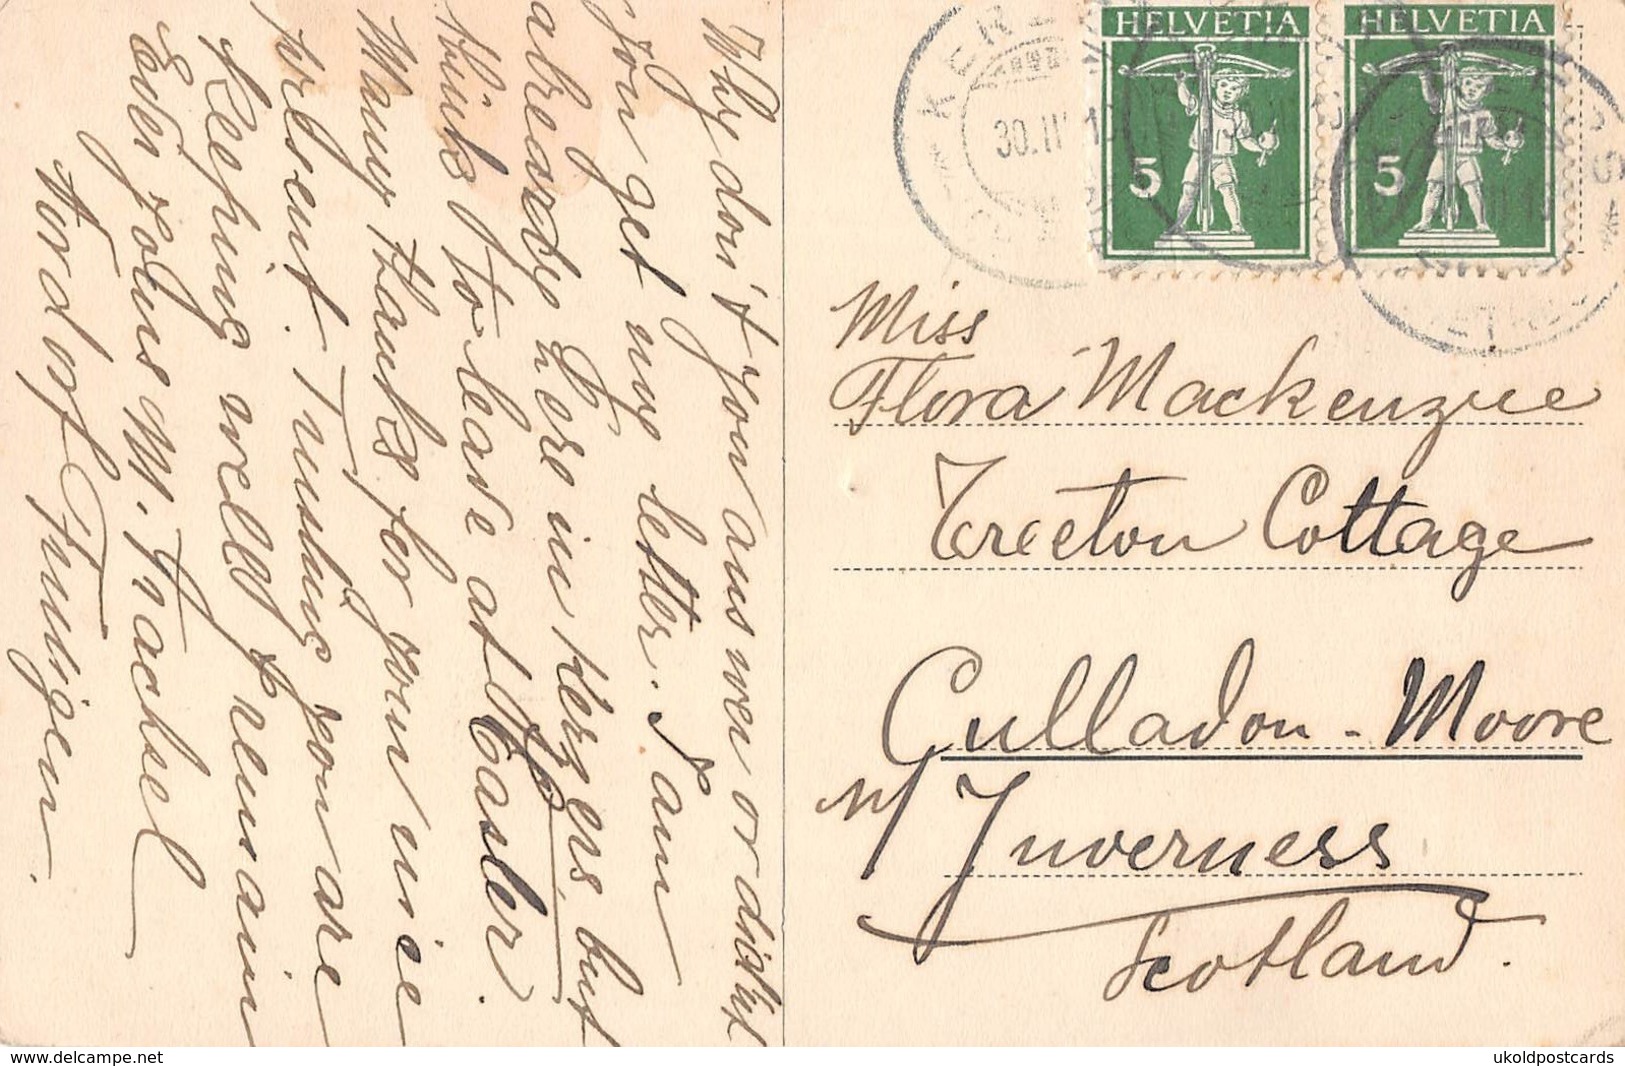 Why don't you answer or didn't
you get my letter. I am
already here in Kerzers but
think to leave at Easter.
Many thanks for your nice
present. Trusting you are
keeping well I remain
Ever yours M. Trachsel
Frutigen.
HELVETIA
5
HELVETIA
5
30.III
Miss
Flora Mackenzie
Treeton Cottage
Culladon-Moore
n/ Inverness
Scotland.
www.delcampe.net
ukoldpostcards